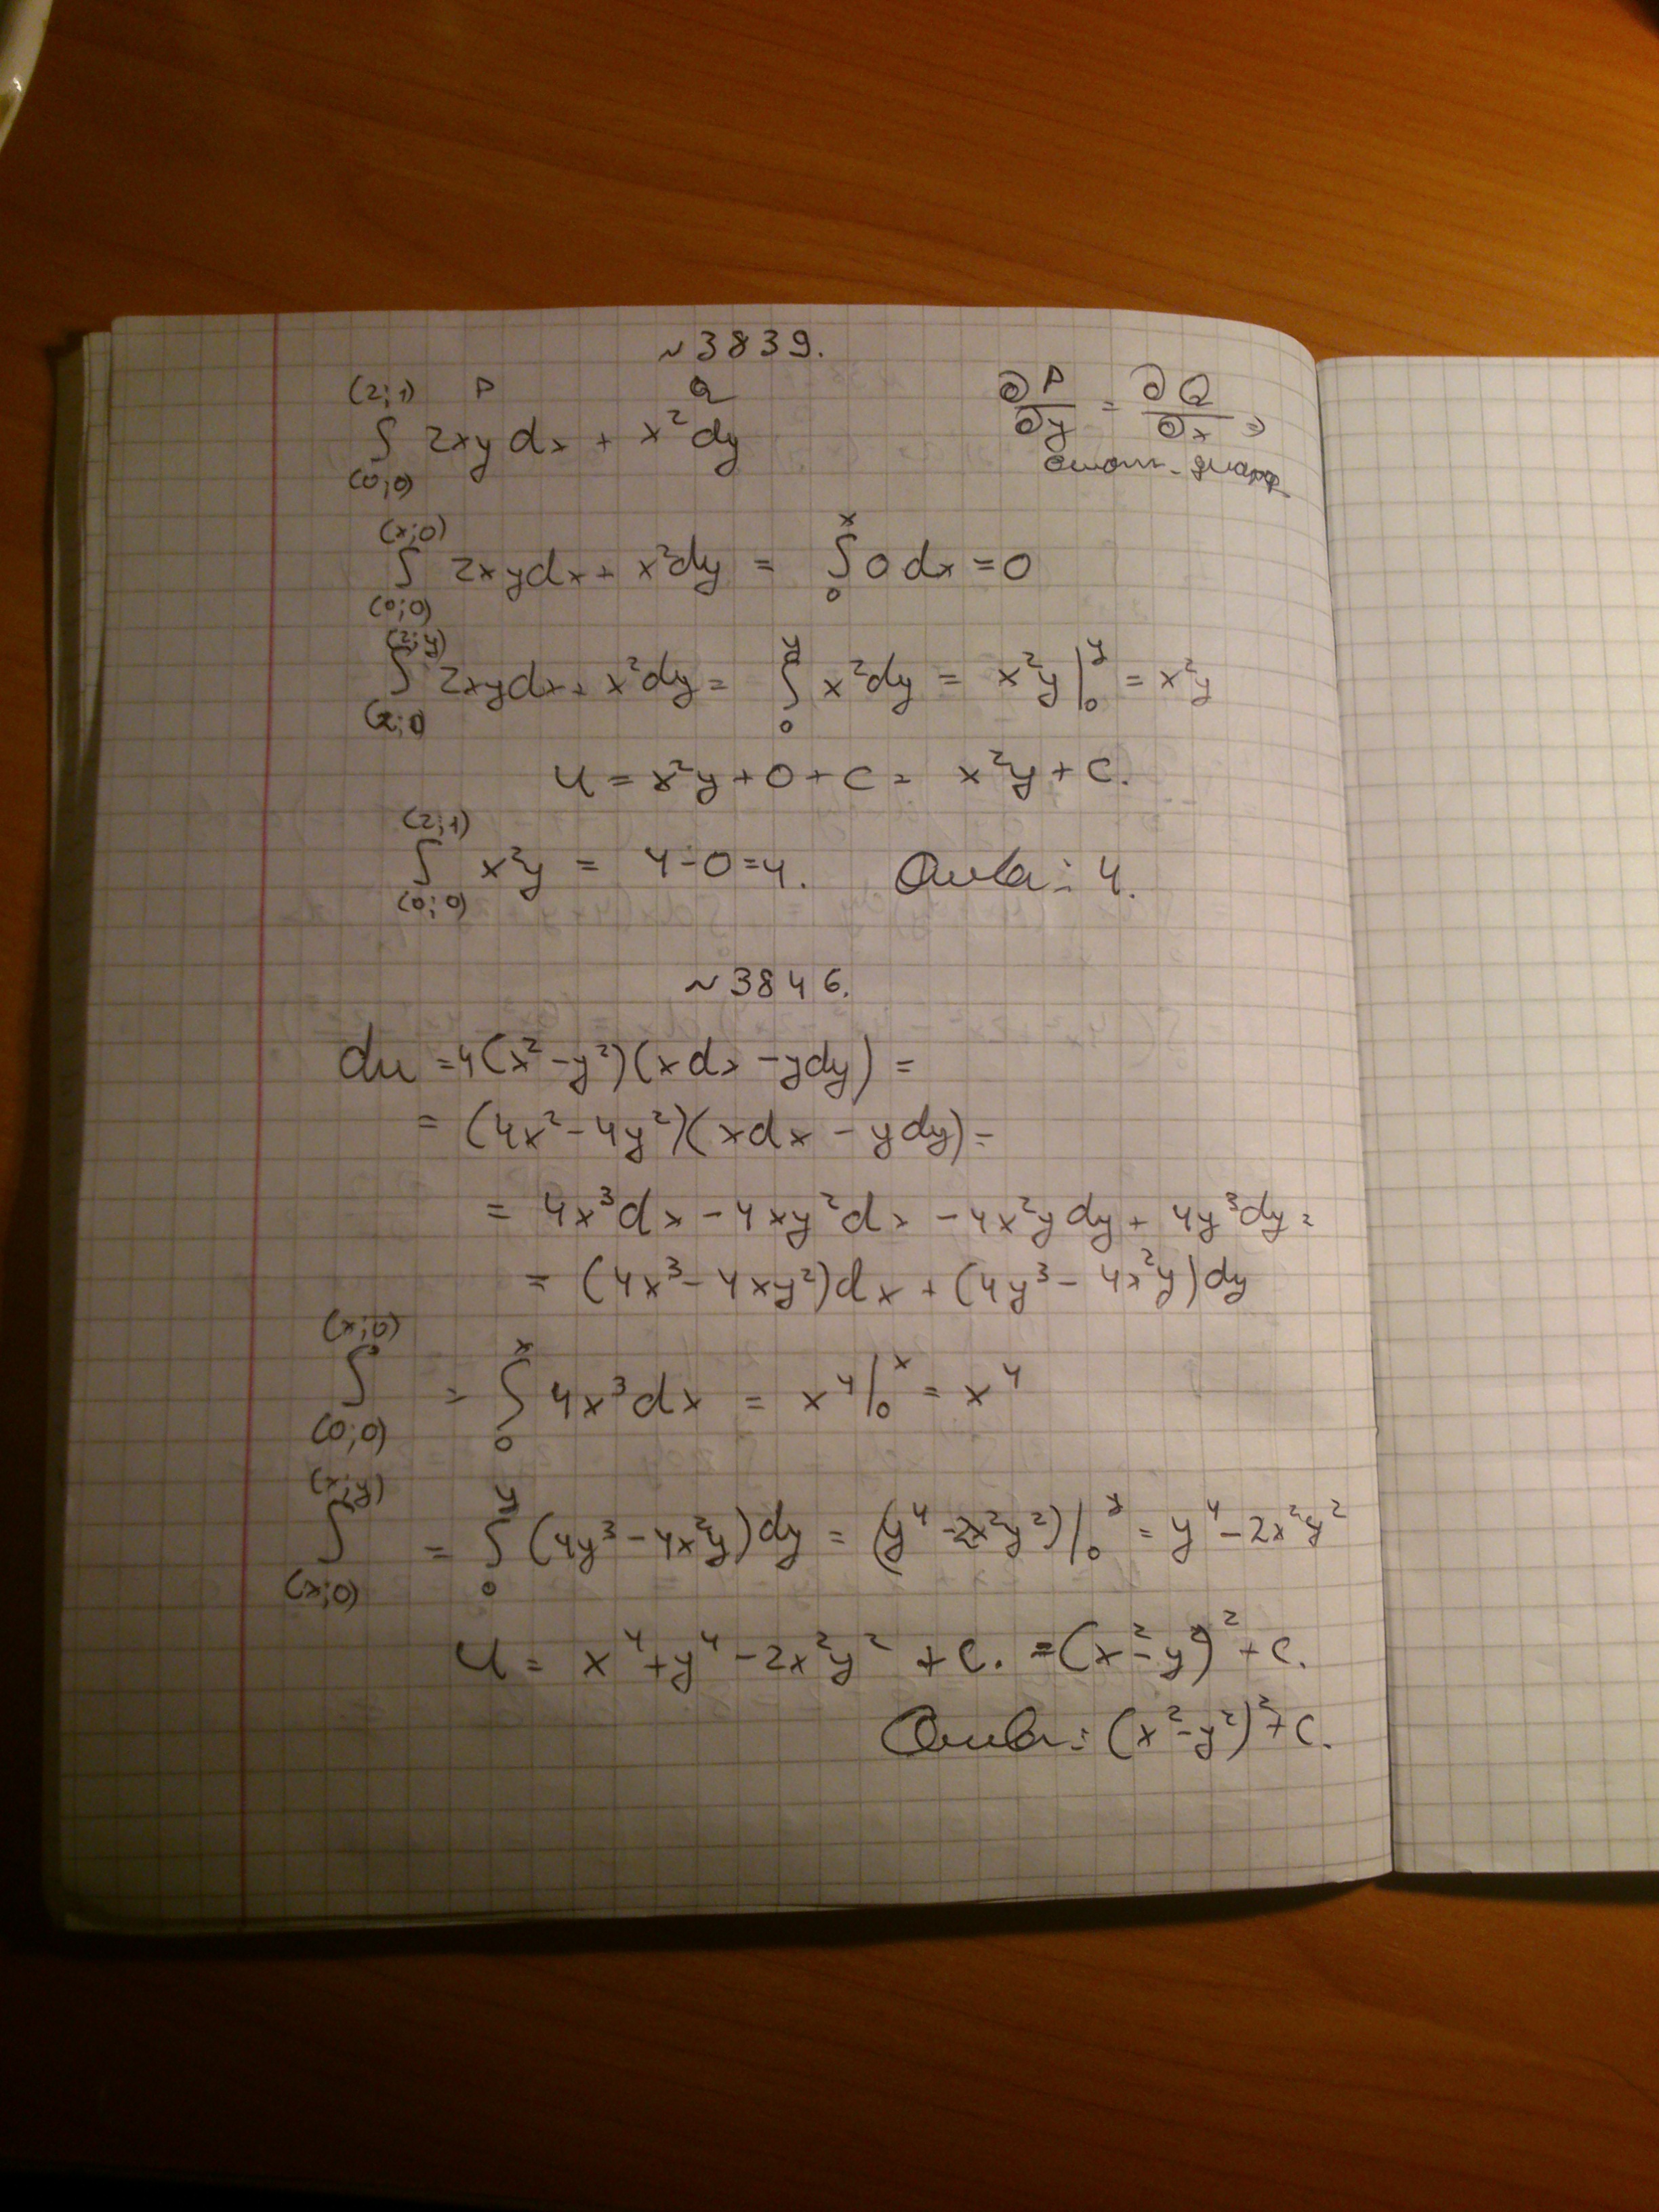 ~3839.
(2;1) P Q
∫ 2xy dx + x² dy ∂P/∂y = ∂Q/∂x ⇒
(0;0)
(x;0) x
∫ 2xydx + x²dy = ∫ 0 dx = 0
(0;0) 0
(2;y) y
∫ 2xydx + x²dy = ∫ x²dy = x²y |₀ʸ = x²y
(2;0) 0
U = x²y + 0 + C = x²y + C.
(2;1)
∫ x²y = 4 - 0 = 4. Ответ: 4.
(0;0)
~3846.
du = 4(x² - y²)(xdx - ydy) =
= (4x² - 4y²)(xdx - ydy) =
= 4x³dx - 4xy²dx - 4x²ydy + 4y³dy =
= (4x³ - 4xy²)dx + (4y³ - 4x²y)dy
(x;0) x
∫ = ∫ 4x³dx = x⁴ |₀ˣ = x⁴
(0;0) 0
(x;y) y
∫ = ∫ (4y³ - 4x²y)dy = (y⁴ - 2x²y²) |₀ʸ = y⁴ - 2x²y²
(x;0) 0
U = x⁴ + y⁴ - 2x²y² + C. = (x² - y²)² + C.
Ответ: (x² - y²)² + C.